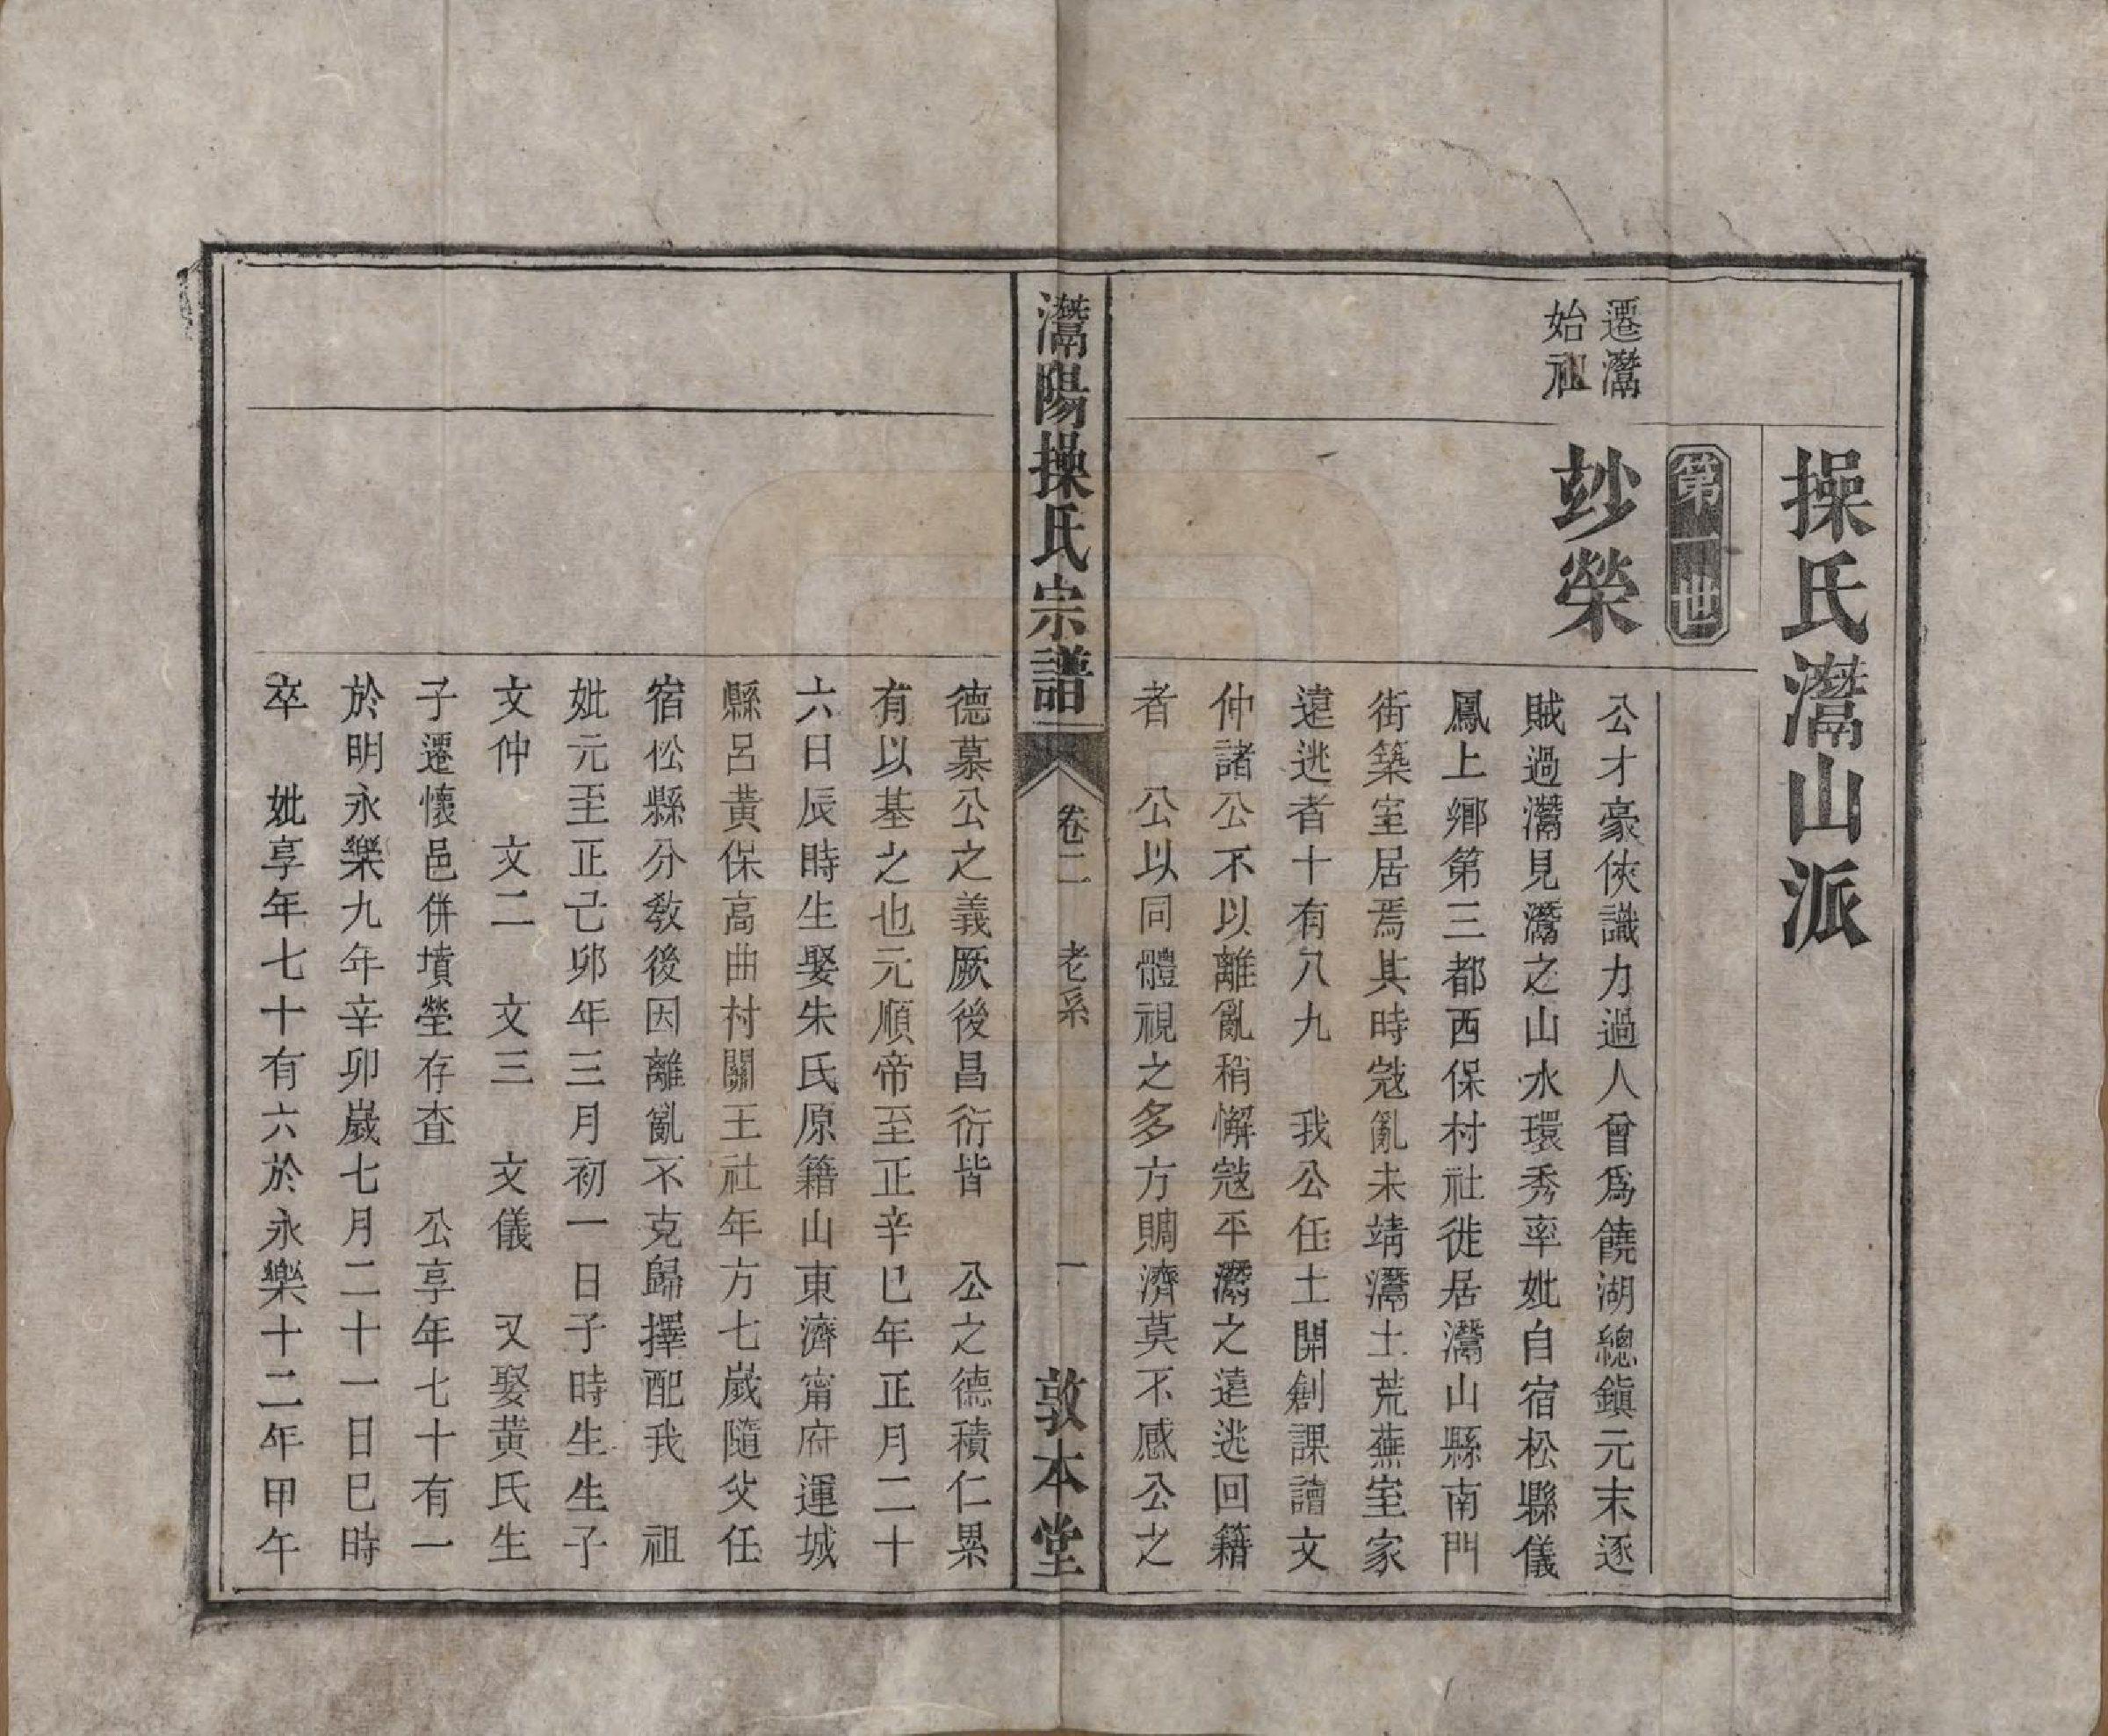 操氏灊山派
第一世
遷灊
始祖
玅榮
公才豪俠識力過人曾爲饒湖總鎭元末逐
賊過灊見灊之山水環秀率妣自宿松縣儀
鳳上鄉第三都西保村社徙居灊山縣南門
街築室居焉其時宼亂未靖灊土荒蕪室家
遠逃者十有八九　我公任土開創課讀文
仲諸公不以離亂稍懈宼平灊之遠逃回籍
者　公以同體視之多方賙濟莫不感公之
灊陽操氏宗譜
卷二　老系
一
敦本堂
德慕公之義厥後昌衍皆　公之德積仁累
有以基之也元順帝至正辛巳年正月二十
六日辰時生娶朱氏原籍山東濟甯府運城
縣呂黃保高曲村關王社年方七歲隨父任
宿松縣分敎後因離亂不克歸擇配我　祖
妣元至正己卯年三月初一日子時生生子
文仲　文二　文三　文儀　又娶黃氏生
子遷懷邑併墳塋存查　公享年七十有一
於明永樂九年辛卯歲七月二十一日巳時
卒　妣享年七十有六於永樂十二年甲午